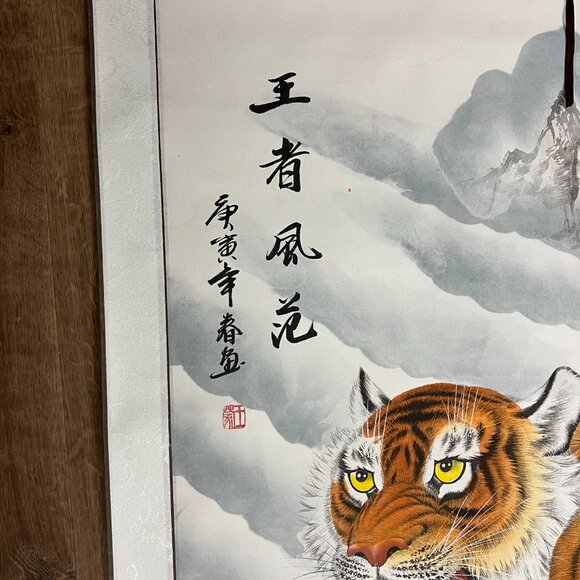 王者風范
庚寅年春画